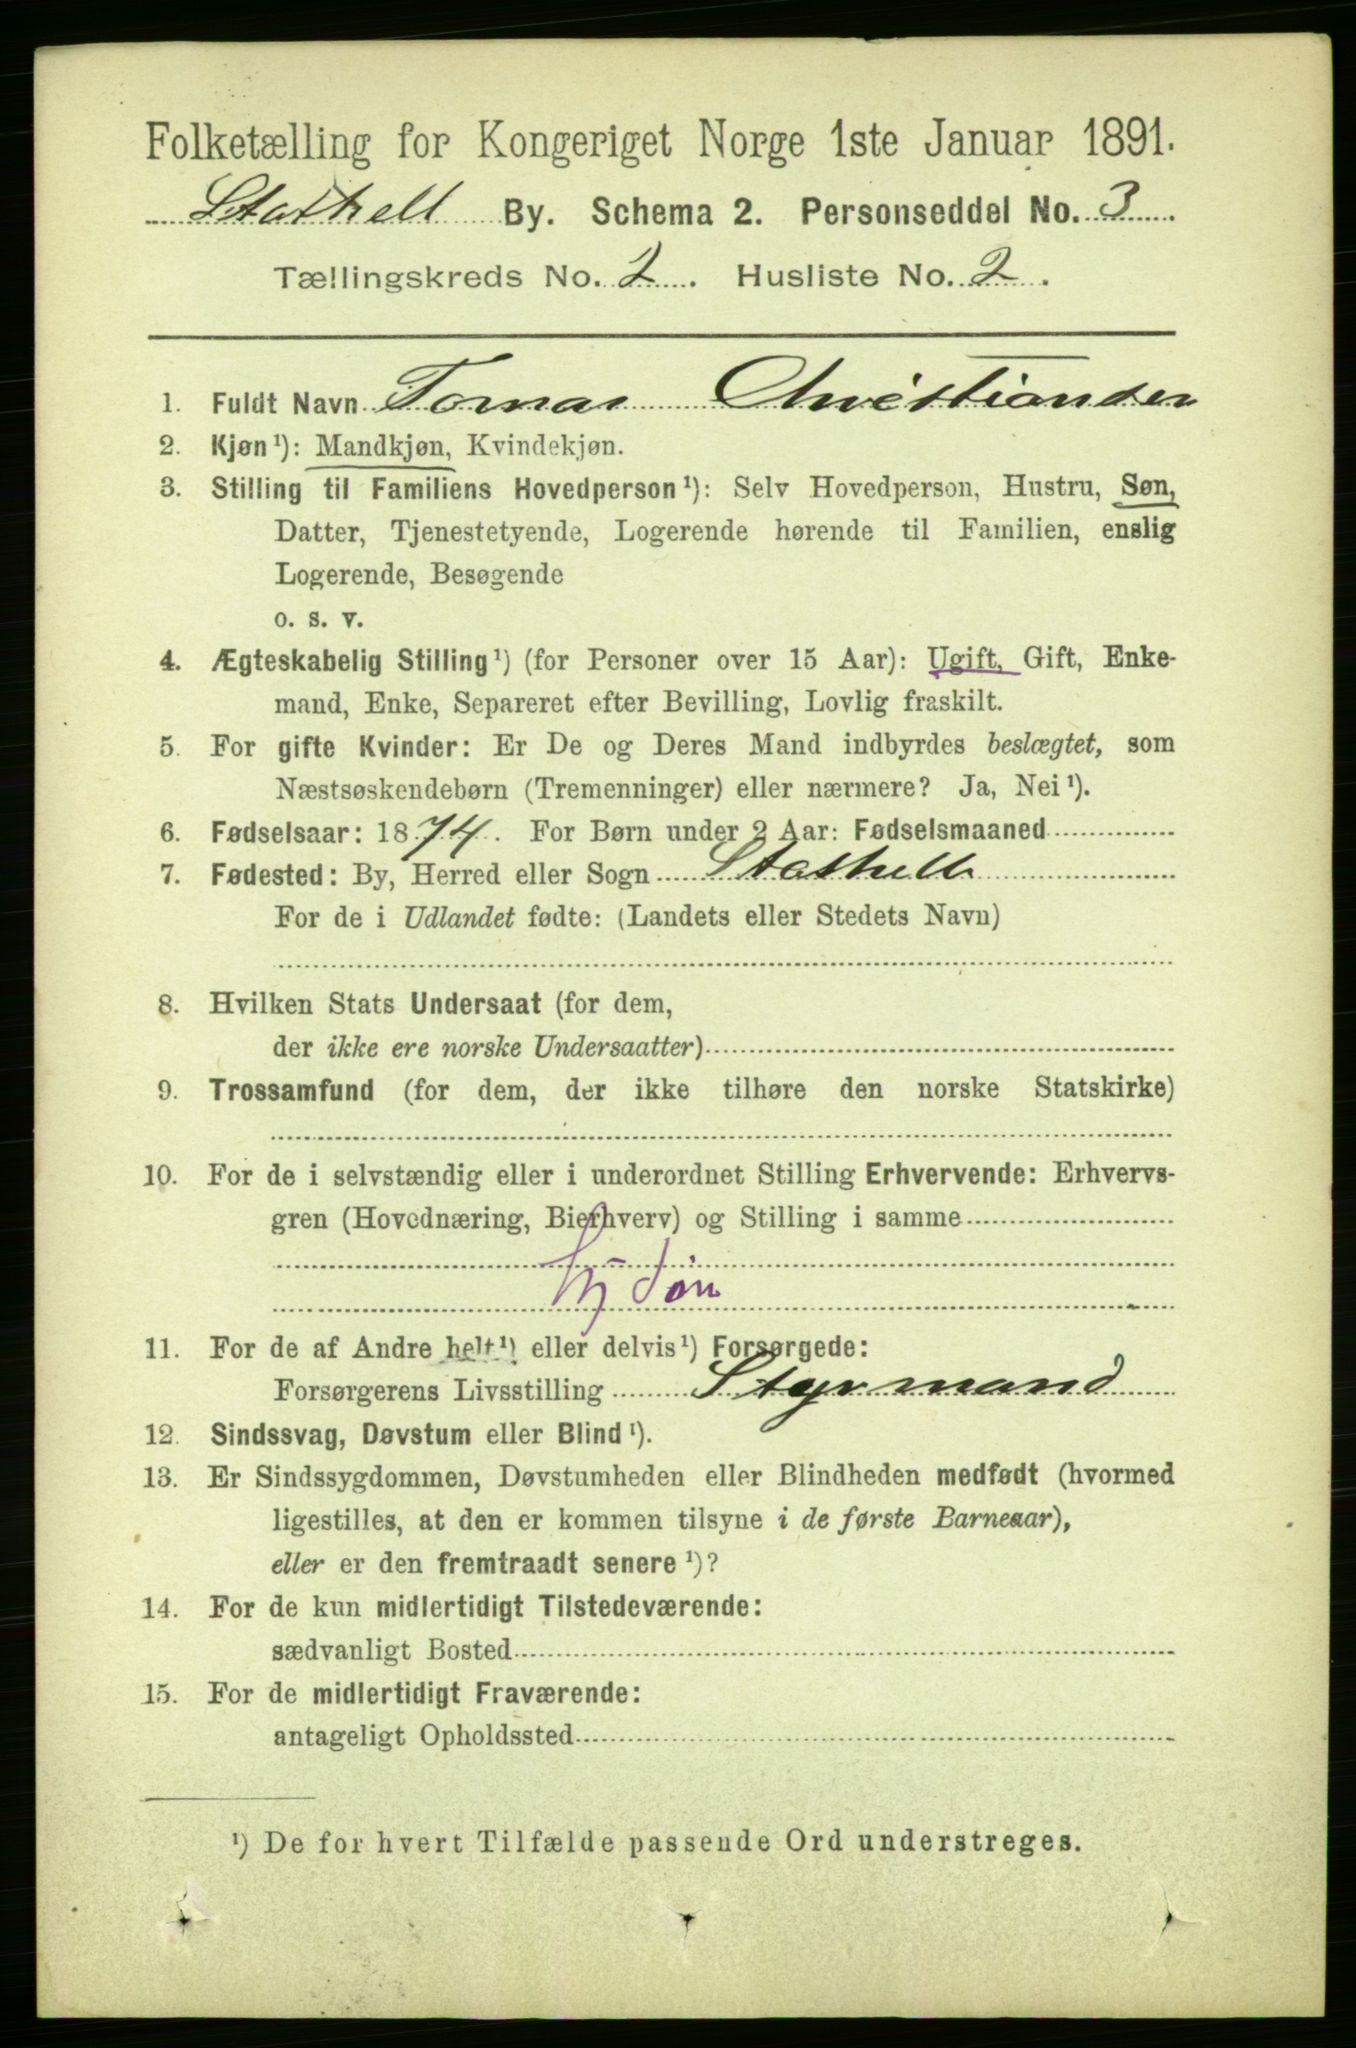 Folketælling for Kongeriget Norge 1ste Januar 1891.
Stathell By. Schema 2. Personseddel No. 3
Tællingskreds No. 2. Husliste No. 2.
1. Fuldt Navn Tomas Christiansen
2. Kjøn¹): Mandkjøn, Kvindekjøn.
3. Stilling til Familiens Hovedperson¹): Selv Hovedperson, Hustru, Søn,
Datter, Tjenestetyende, Logerende hørende til Familien, enslig
Logerende, Besøgende
o. s. v.
4. Ægteskabelig Stilling¹) (for Personer over 15 Aar): Ugift, Gift, Enke-
mand, Enke, Separeret efter Bevilling, Lovlig fraskilt.
5. For gifte Kvinder: Er De og Deres Mand indbyrdes beslægtet, som
Næstsøskendebørn (Tremenninger) eller nærmere? Ja, Nei¹).
6. Fødselsaar: 1874. For Børn under 2 Aar: Fødselsmaaned
7. Fødested: By, Herred eller Sogn Stathelle
For de i Udlandet fødte: (Landets eller Stedets Navn)
8. Hvilken Stats Undersaat (for dem,
der ikke ere norske Undersaatter)
9. Trossamfund (for dem, der ikke tilhøre den norske Statskirke)
10. For de i selvstændig eller i underordnet Stilling Erhvervende: Erhvervs-
gren (Hovednæring, Bierhverv) og Stilling i samme
11. For de af Andre helt¹) eller delvis¹) Forsørgede:
Forsørgerens Livsstilling Styrmand
12. Sindssvag, Døvstum eller Blind¹).
13. Er Sindssygdommen, Døvstumheden eller Blindheden medfødt (hvormed
ligestilles, at den er kommen tilsyne i de første Barneaar),
eller er den fremtraadt senere¹)?
14. For de kun midlertidigt Tilstedeværende:
sædvanligt Bosted
15. For de midlertidigt Fraværende:
antageligt Opholdssted
¹) De for hvert Tilfælde passende Ord understreges.